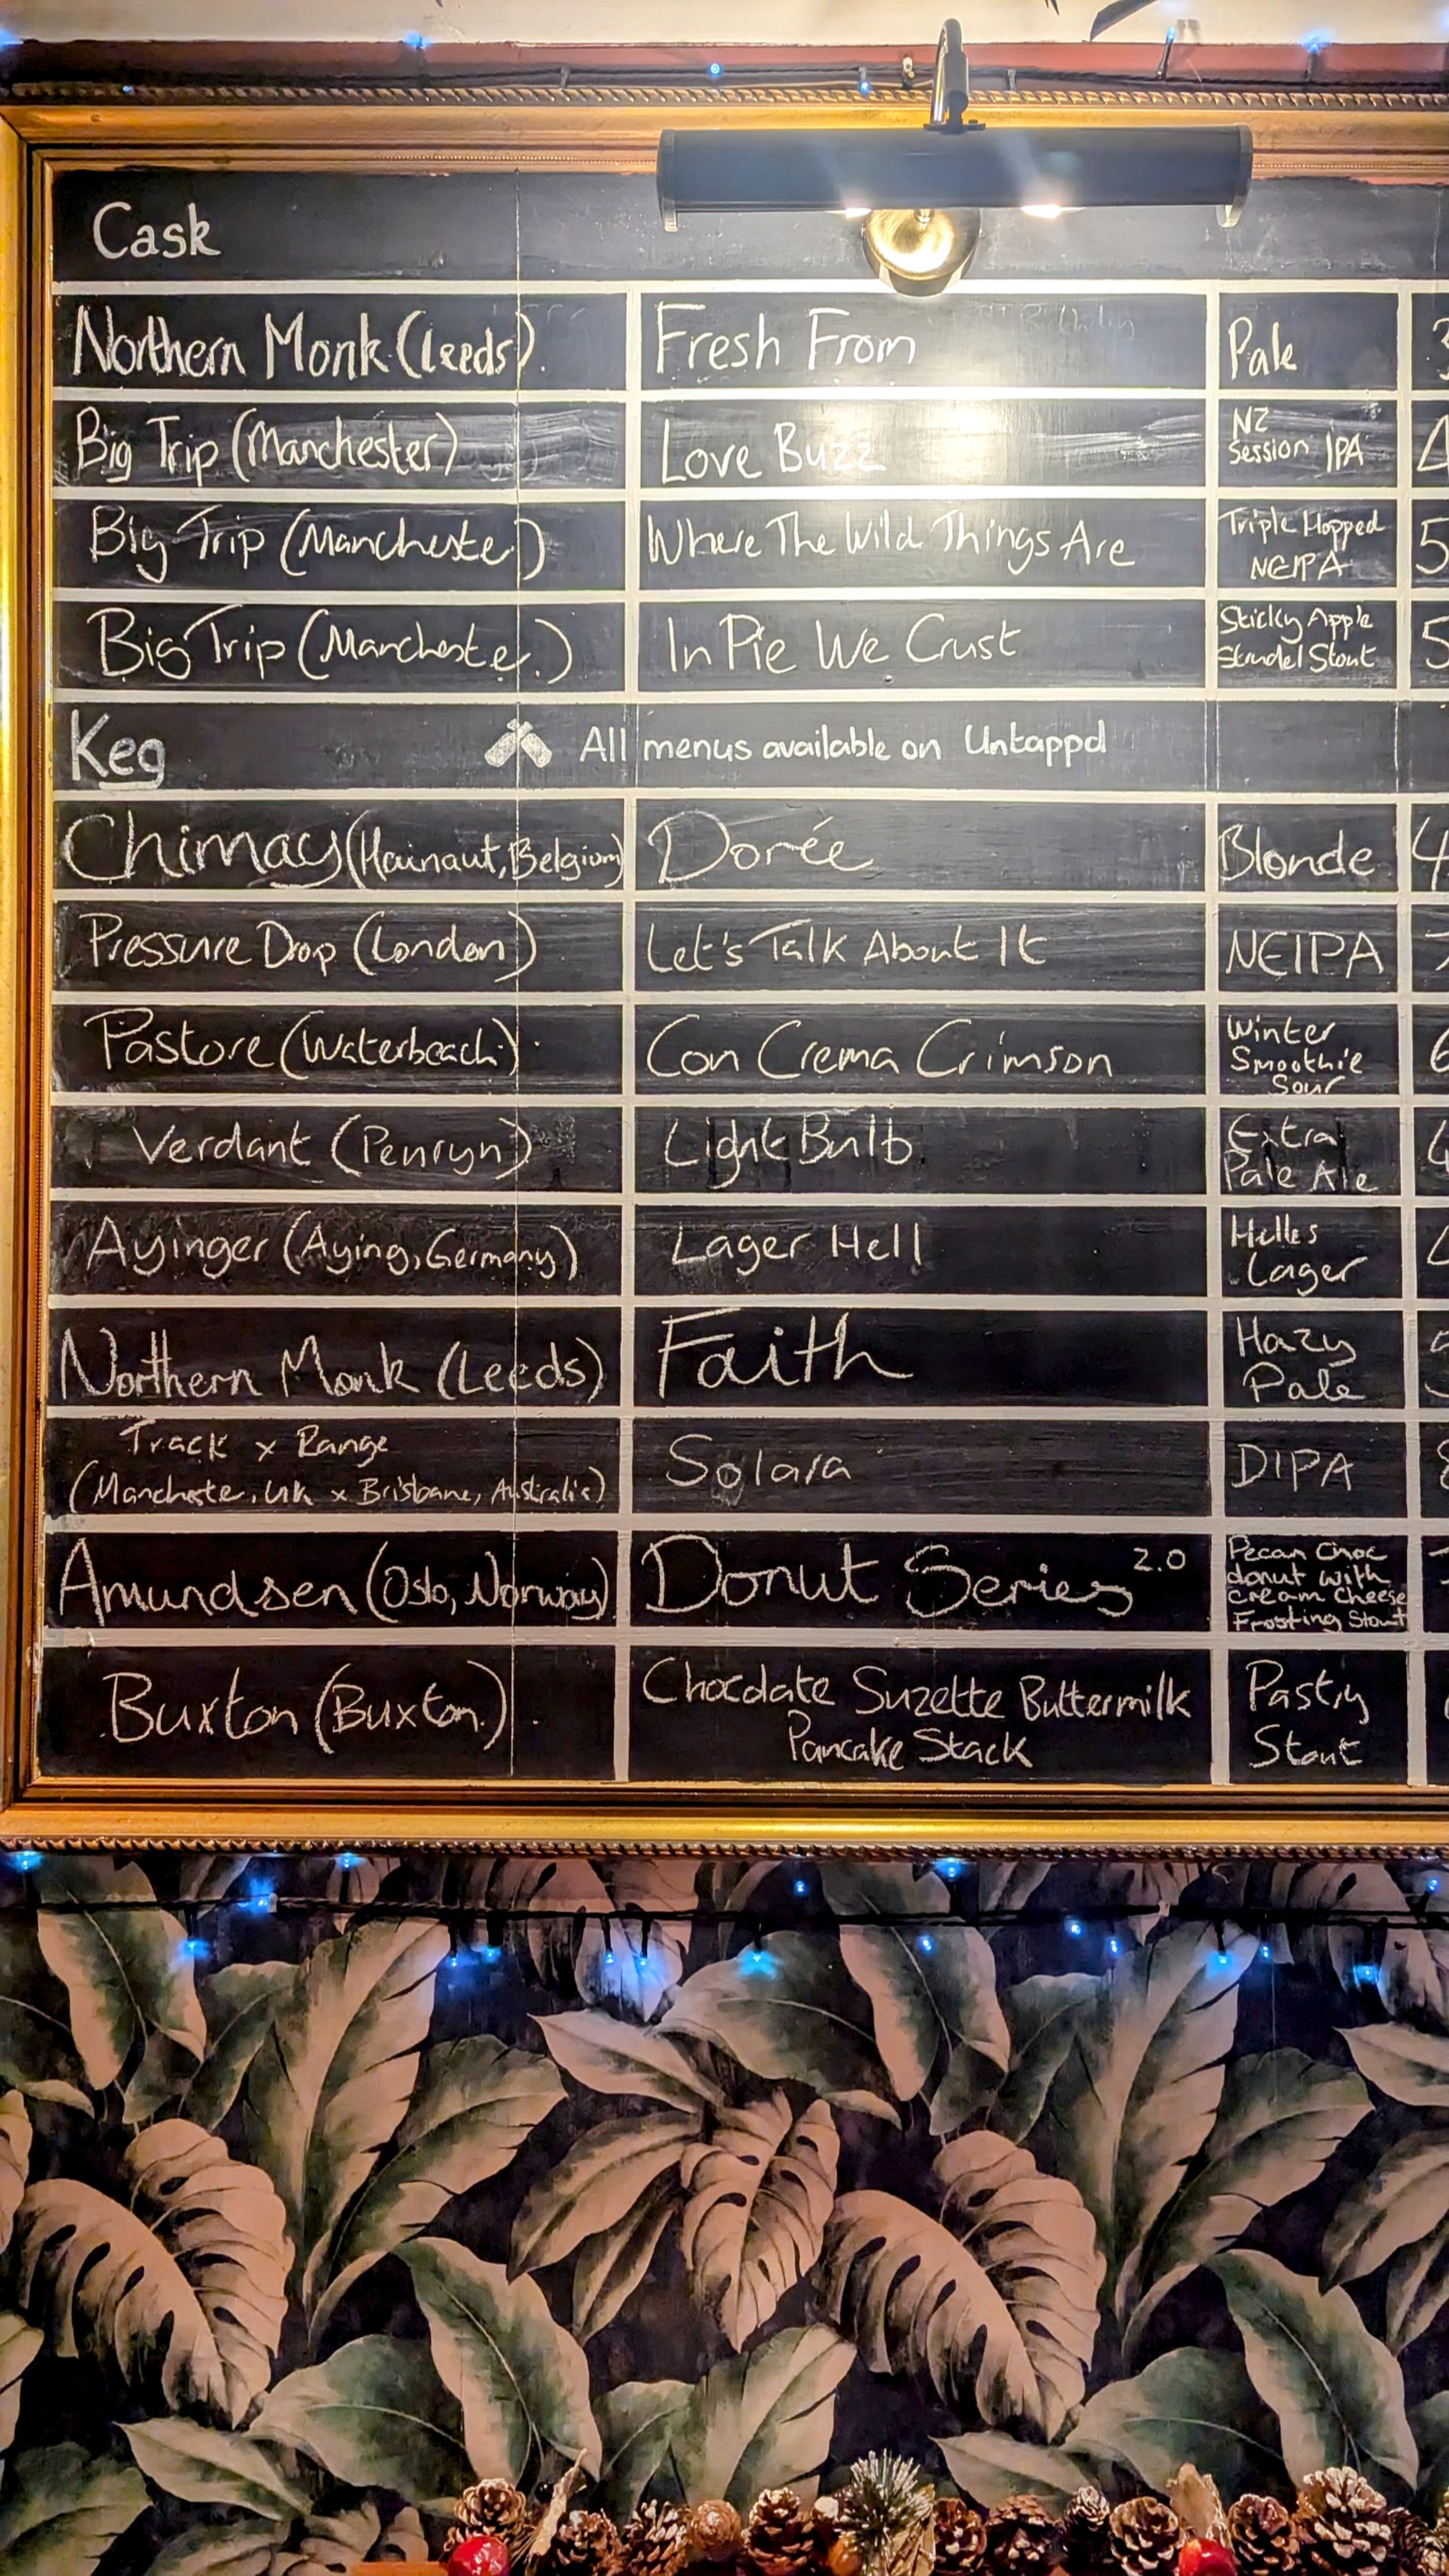 Cask
Northern Monk (Leeds). Fresh From Pale
Big Trip (Manchester) Love Buzz NZ Session IPA
Big Trip (Manchester) Where The Wild Things Are Triple Hopped NEIPA 5
Big Trip (Manchester.) In Pie We Crust Sticky Apple Strudel Stout 5
Keg All menus available on Untappd
Chimay (Hainaut, Belgium) Dorée Blonde 4
Pressure Drop (London) Let's Talk About It NEIPA
Pastore (Waterbeach) Con Crema Crimson Winter Smoothie Sour
Verdant (Penryn) Light Bulb Extra Pale Ale
Ayinger (Aying, Germany) Lager Hell Helles Lager
Northern Monk (Leeds) Faith Hazy Pale
Track x Range
(Manchester, UK x Brisbane, Australia) Solara DIPA
Amundsen (Oslo, Norway) Donut Series 2.0 Pecan Choc donut with cream cheese Frosting Stout
Buxton (Buxton.) Chocolate Suzette Buttermilk Pancake Stack Pastry Stout